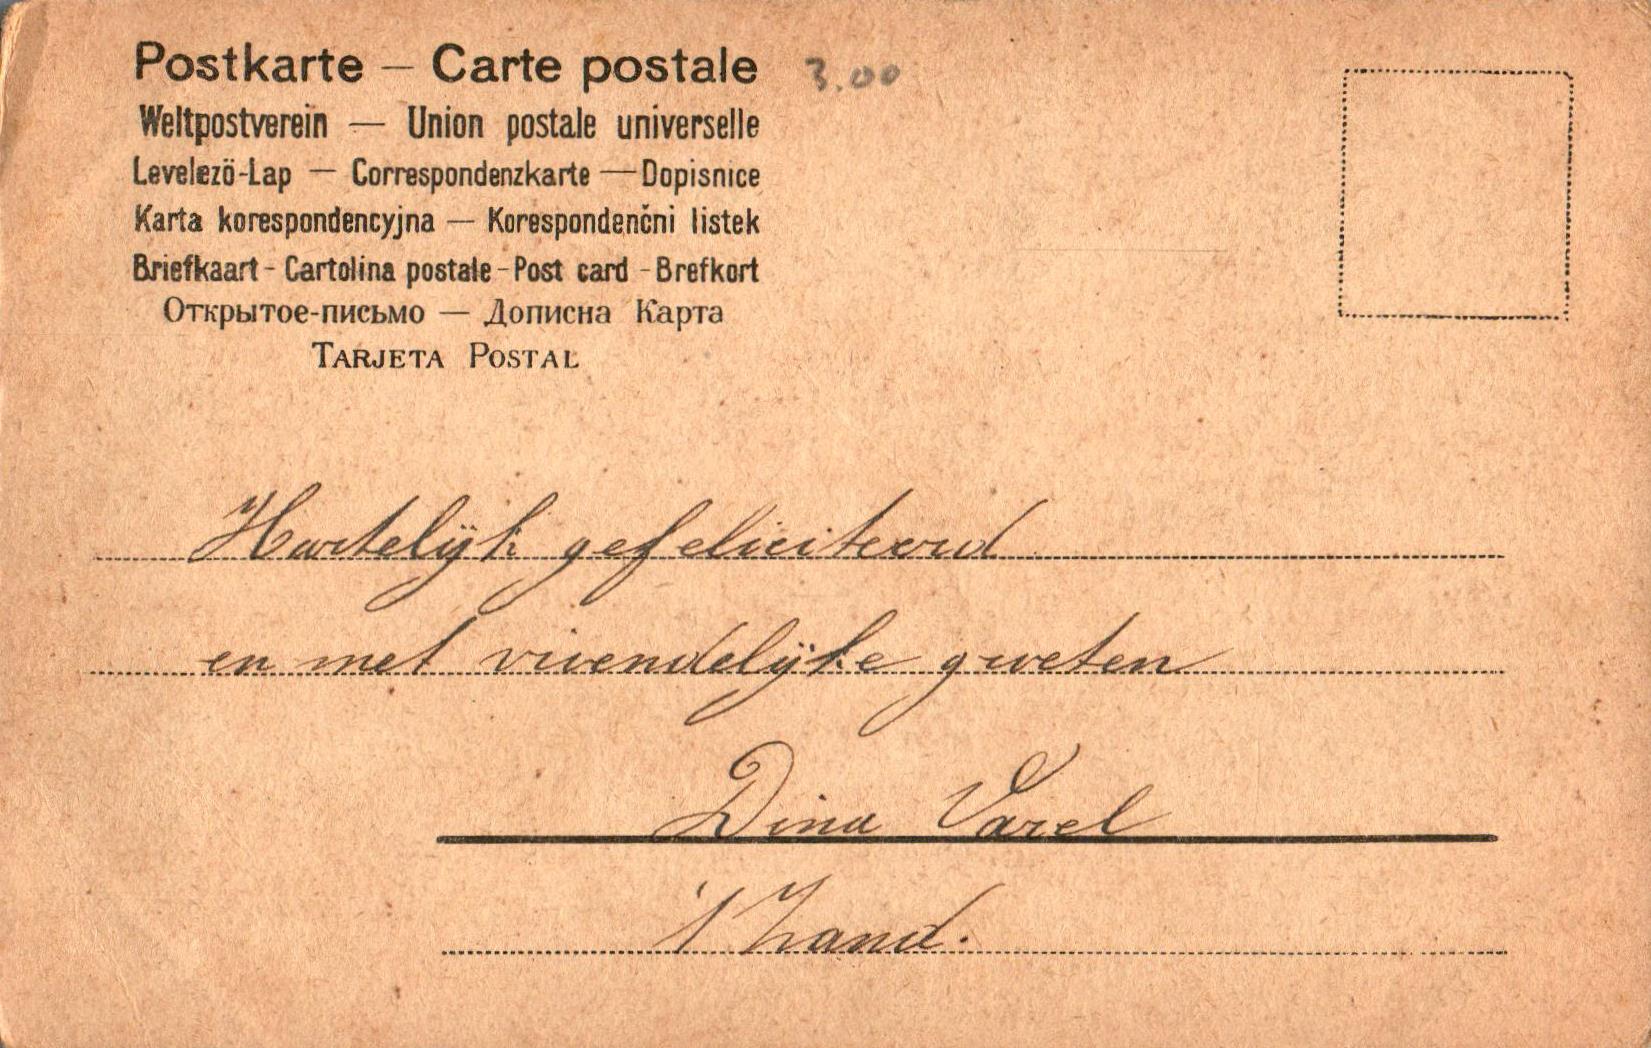 Postkarte — Carte postale 3.00
Weltpostverein — Union postale universelle
Levelező-Lap — Correspondenzkarte — Dopisnice
Karta korespondencyjna — Korespondenčni listek
Briefkaart - Cartolina postale - Post card - Brefkort
Открытое-письмо — Дописна Карта
Tarjeta Postal
Hartelijk gefeliciteerd
en met vriendelijke groeten
Dina Varel
't Zand.